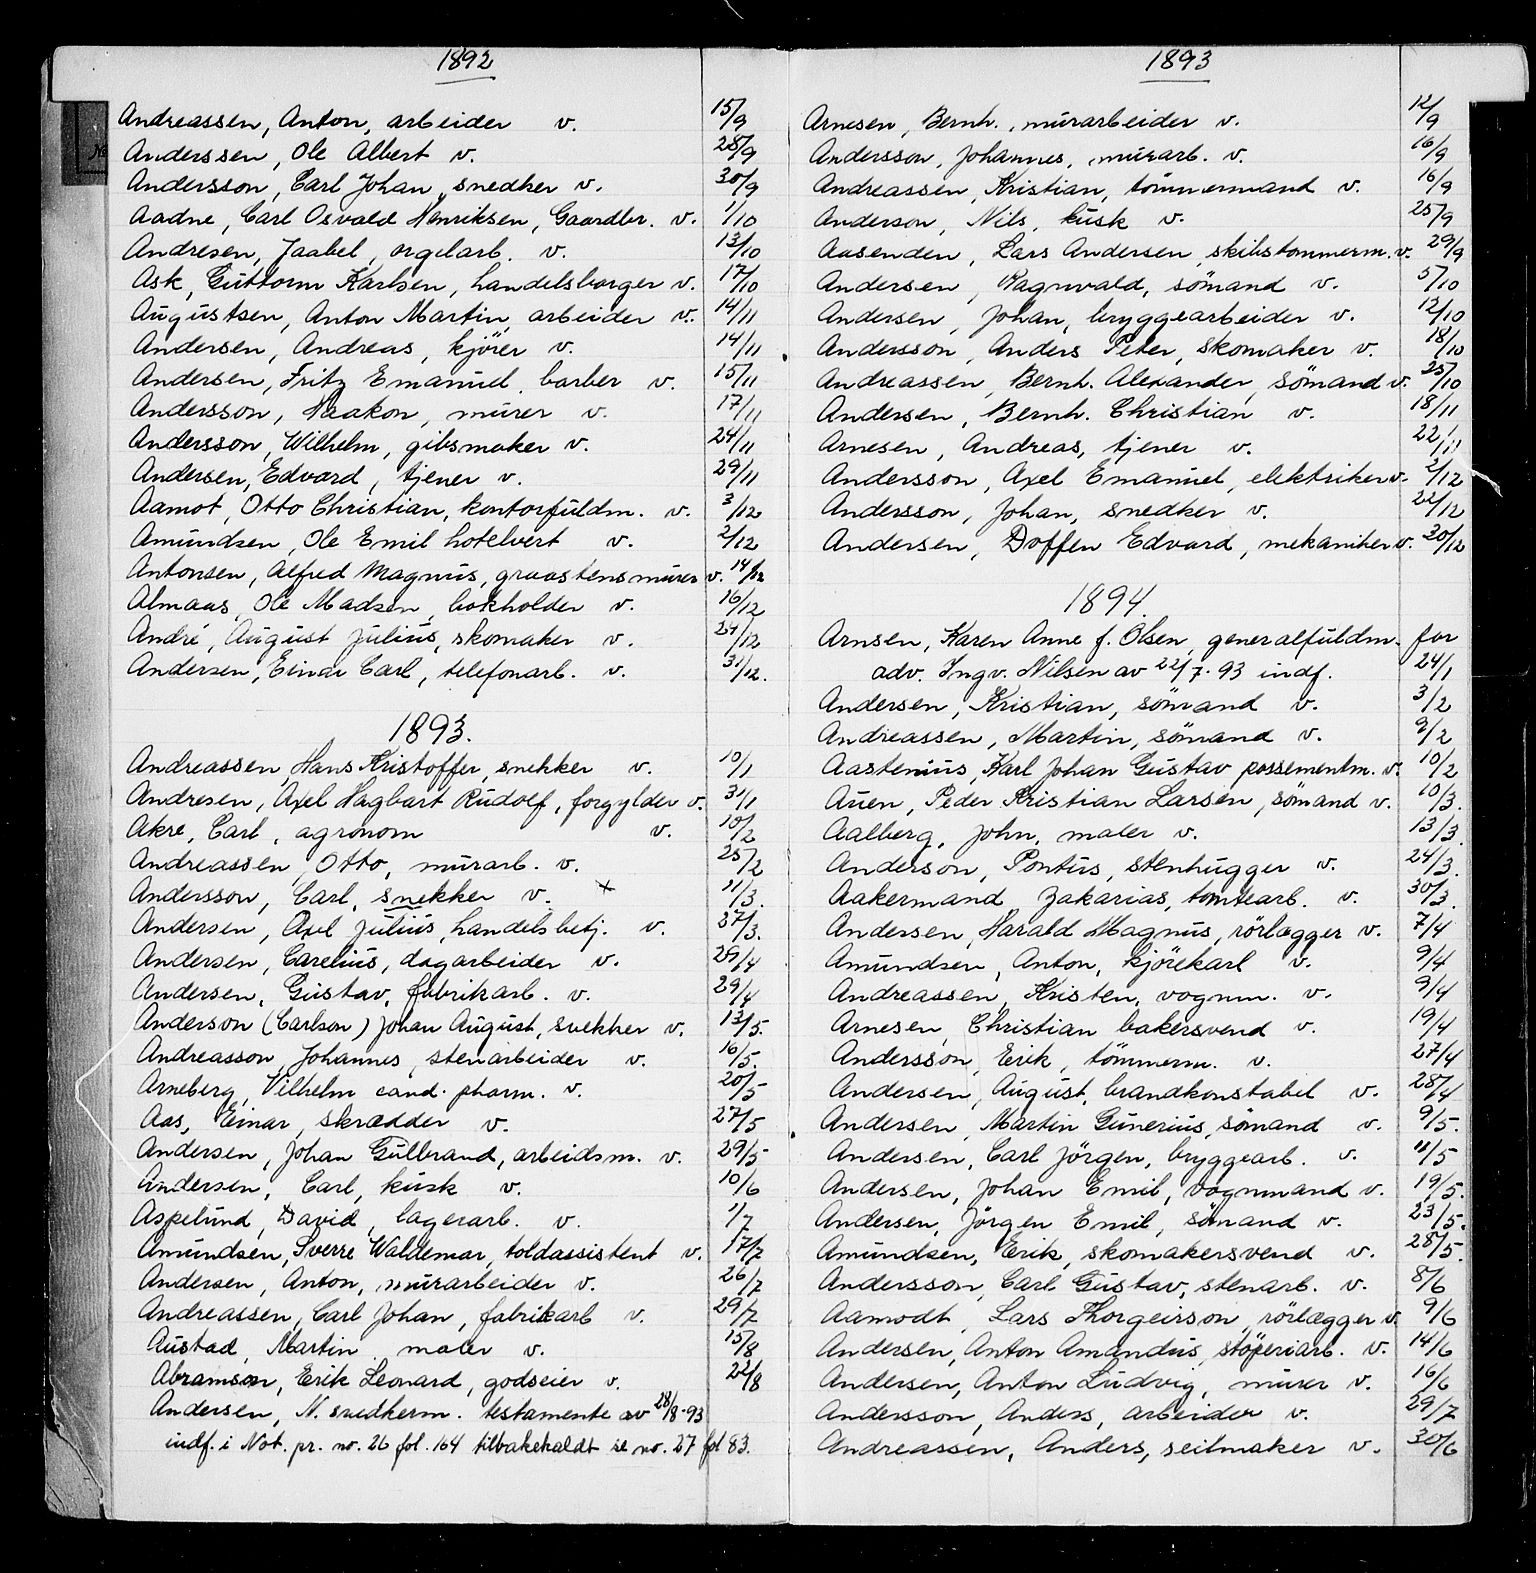 1892
Andreassen, Anton, arbeider v. 15/9
Anderssen, Ole Albert v. 28/9
Andersson, Carl Johan, snedker v. 30/9
Aadne, Carl Osvald Henriksen, Gaardbr. v. 1/10
Andresen, Jaabel, orgelarb. v. 13/10
Ask, Guttorm Karlsen, handelsborger v. 17/10
Augustsen, Anton Martin, arbeider v. 14/11
Andersen, Andreas, kjører v. 14/11
Andersen, Fritz Emanuel, barber v. 15/11
Andersson, Haakon, murer v. 17/11
Andersson, Wilhelm, gibsmaker v. 24/11
Andersen, Edvard, tjener v. 29/11
Aamot, Otto Christian, kontorfuldm. v. 3/12
Amundsen, Ole Emil hotelvert v. 2/12
Antonsen, Alfred Magnus, graastensmurer v. 14/12
Almaas, Ole Madsen, bokholder v. 16/12
André, August Julius, skomaker v. 24/12
Andersen, Einar Carl, telefonarb. v. 31/12.
1893.
Andreassen, Hans Kristoffer, snekker v. 10/1
Andresen, Axel Hagbart Rudolf, forgylder v. 31/1
Akre, Carl, agronom v. 10/2
Andreassen, Otto, murarb. v. 25/2
Andersson, Carl, snekker v. x 11/3.
Andersen, Axel Julius, handelsbetj. v. 27/3.
Andersen, Carelius, dagarbeider v. 29/4
Andersen, Gustav, fabrikarb. v. 29/4
Anderson (Carlson) Johan August, snekker v. 13/5.
Andreasson, Johannes, stenarbeider v. 16/5.
Arneberg, Vilhelm cand. pharm. v. 20/5
Aas, Einar, skrædder v. 27/5
Andersen, Johan Gulbrand, arbeidsm. v. 29/5
Andersen, Carl, kusk v. 10/6
Aspelund, David, lagerarb. v. 1/7
Amundsen, Sverre Waldemar, toldassistent v. 17/7
Andersen, Anton, murarbeider v. 26/7
Andreassen, Carl Johan, fabrikarb v. 29/7
Austad, Martin, maler v. 15/8
Abramson, Erik Leonard, godseier v. 22/8
Andersen, N. snedkerm. testamente av 28/8-93
indf. i Not. pr. no. 26 fol. 164 tilbakekaldt se no. 27 fol 83.
1893
Arnesen, Bernh., murarbeider v. 12/9
Andersson, Johannes, murarb. v. 16/9
Andreassen, Kristian, tömmermand v. 16/9
Anderson, Nils, kusk v. 25/9
Aasenden, Lars Andersen, skibstømmerm. v. 29/9
Andersen, Ragnvald, sömand v. 5/10
Andersen, Johan, bryggearbeider v. 12/10
Andersson, Anders Peter, skomaker v. 18/10
Andreassen, Bernh. Alexander, sömand v. 25/10
Andersen, Bernh. Christian v. 18/11
Arnesen, Andreas, tjener v. 22/11
Andersson, Axel Emanuel, elektriker v. 2/12
Andersson, Johan, snedker v. 22/12
Andersen, Doffen Edvard, mekaniker v. 30/12
1894.
Arnsen, Karen Anne f. Olsen, generalfuldm. for
adv. Ingv. Nilsen av 22/7-93 indf. 24/1
Andersen, Kristian, sömand v. 3/2
Andreassen, Martin, sömand v. 9/2
Aastenius, Karl Johan Gustav possementm. v. 10/2
Auen, Peder Kristian Larsen, sömand v. 10/3.
Aalberg, John, maler v. 13/3.
Anderson, Pontus, stenhugger v. 24/3.
Aakermand, Zakarias, tomtearb. v. 30/3.
Andersen, Harald Magnus, rörlægger v. 7/4
Amundsen, Anton, kjörekarl v. 9/4
Andreassen, Kristen, vognm. v. 9/4
Arnesen, Christian bakersvend v. 19/4
Andersson, Erik, tömmerm. v. 27/4
Andersen, August, brandkonstabel v. 28/4
Andersen, Martin Gunerius, sömand v. 9/5.
Andersen, Carl Jörgen, bryggearb. v. 11/5
Andersen, Johan Emil, vognmand v. 19/5.
Andersen, Jörgen Emil, sömand v. 23/5.
Amundsen, Erik, skomakersvend v. 28/5.
Andersson, Carl Gustav, stenarb. v. 8/6
Aamodt, Lars Thorgeirson, rörlægger v. 9/6
Andersen, Anton Amandus, stöperiarb. v. 14/6
Andersen, Anton Ludvig, murer v. 16/6
Andersson, Anders, arbeider v. 29/7
Andreassen, Anders, seilmaker v. 30/6